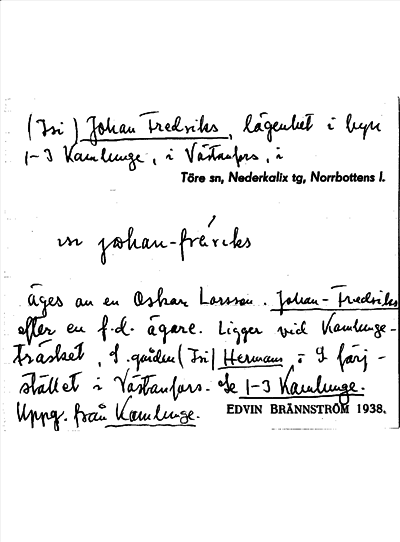 (Isi) Johan Fredriks, lägenhet i byn
1-3 Kamlunge, i Västanfors, i
Töre sn, Nederkalix tg, Norrbottens l.
isi johan-fréricks
äges av en Oskar Larsson. Johan-Fredriks
efter en f.d. ägare. Ligger vid Kamlunge-
träsket, S. gården (Isi) Hermans, i S färj-
stället i Västanfors. Se 1-3 Kamlunge.
Uppg. från Kamlunge.
EDVIN BRÄNNSTRÖM 1938.